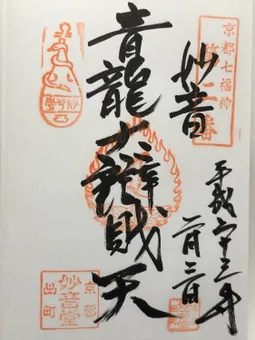 京都七福神
番
妙音
青龍大辨財天
平成二十三年
二月三日
京都
妙音堂
出町